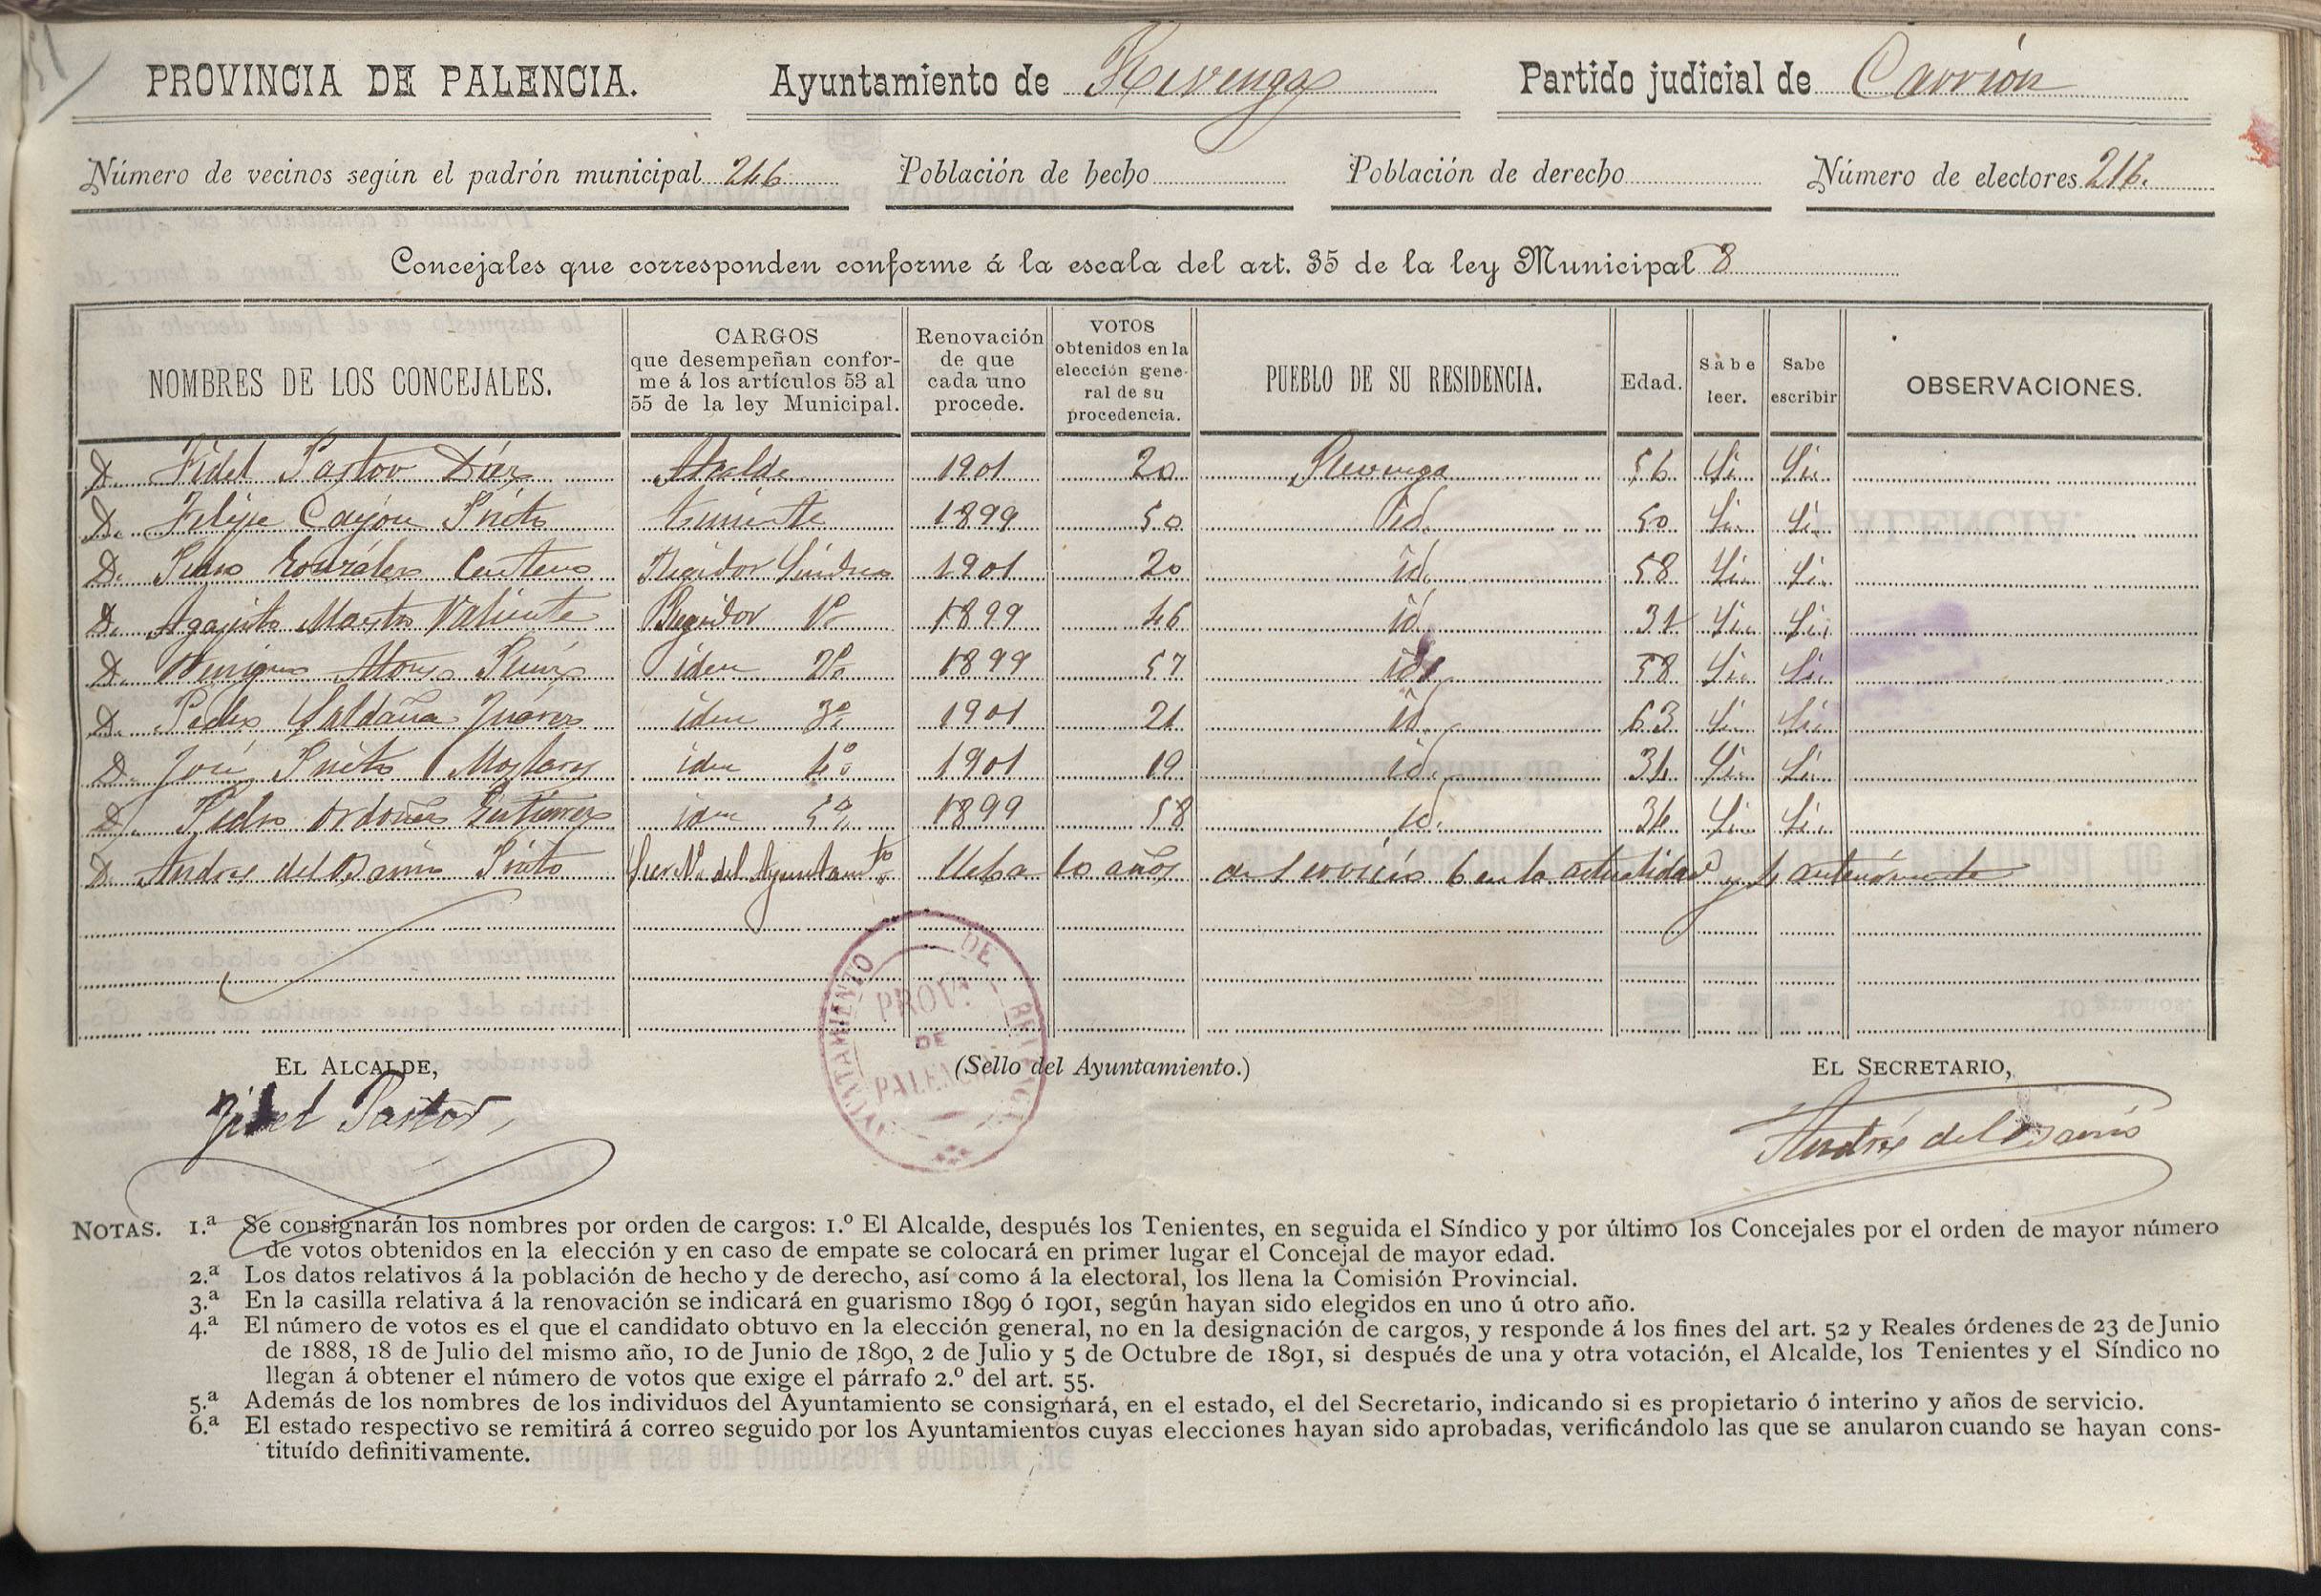 PROVINCIA DE PALENCIA. Ayuntamiento de Revenga Partido judicial de Carrión
Número de vecinos según el padrón municipal 246 Población de hecho Población de derecho Número de electores 216.
Concejales que corresponden conforme á la escala del art. 35 de la ley Municipal 8
NOMBRES DE LOS CONCEJALES. CARGOS que desempeñan conforme á los artículos 53 al 55 de la ley Municipal. Renovación de que cada uno procede. VOTOS obtenidos en la elección general de su procedencia. PUEBLO DE SU RESIDENCIA. Edad. Sabe leer. Sabe escribir OBSERVACIONES.
D. Fidel Pastor Díez Alcalde 1901 20 Revenga 56 Si Si
D. Felipe Cayón Prieto teniente 1899 50 id. 50 Si Si
D. González Centeno Regidor Síndico 1901 20 id. 58 Si Si
D. Agapito Martin Valiente Regidor 1º 1899 46 id. 31 Si Si
D. Benigno Alonso iden 2º 1899 57 id. 58 Si Si
D. Pedro Saldaña Juárez iden 3º 1901 21 id. 63 Si Si
D. José Prieto iden 4º 1901 19 id. 34 Si Si
D. Pedro Ordoñez Gutierrez iden 5º 1899 58 id. 34 Si Si
D. Andres del Barrio Prieto Secrio del Ayuntamto lleba 10 años de servicio 6 en la actualidad y 4 anteriormente
EL ALCALDE, (Sello del Ayuntamiento.) EL SECRETARIO,
AYUNTAMIENTO DE REVENGA
PROVA DE PALENCIA
Fidel Pastor
Andrés del Barrio
NOTAS. 1.ª Se consignarán los nombres por orden de cargos: 1.º El Alcalde, después los Tenientes, en seguida el Síndico y por último los Concejales por el orden de mayor número
de votos obtenidos en la elección y en caso de empate se colocará en primer lugar el Concejal de mayor edad.
2.ª Los datos relativos á la población de hecho y de derecho, así como á la electoral, los llena la Comisión Provincial.
3.ª En la casilla relativa á la renovación se indicará en guarismo 1899 ó 1901, según hayan sido elegidos en uno ú otro año.
4.ª El número de votos es el que el candidato obtuvo en la elección general, no en la designación de cargos, y responde á los fines del art. 52 y Reales órdenes de 23 de Junio
de 1888, 18 de Julio del mismo año, 10 de Junio de 1890, 2 de Julio y 5 de Octubre de 1891, si después de una y otra votación, el Alcalde, los Tenientes y el Síndico no
llegan á obtener el número de votos que exige el párrafo 2.º del art. 55.
5.ª Además de los nombres de los individuos del Ayuntamiento se consignará, en el estado, el del Secretario, indicando si es propietario ó interino y años de servicio.
6.ª El estado respectivo se remitirá á correo seguido por los Ayuntamientos cuyas elecciones hayan sido aprobadas, verificándolo las que se anularon cuando se hayan cons-
tituído definitivamente.